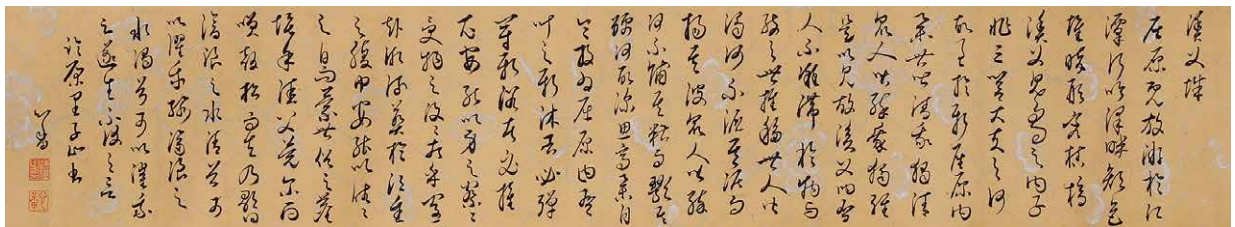 漁父辭
屈原既放游於江
潭行吟澤畔顏色
憔悴形容枯槁
漁父見而問之曰子
非三閭大夫與何
故至於斯屈原曰
舉世皆濁我獨清
眾人皆醉我獨醒
是以見放漁父曰聖
人不凝滯於物而
能與世推移世人皆
濁何不淈其泥而
揚其波眾人皆醉
何不餔其糟而歠其
醨何故深思高舉自
令放為屈原曰吾
聞之新沐者必彈
冠新浴者必振
衣安能以身之察察
受物之汶汶者乎寧
赴湘流葬於江魚
之腹中安能以皓皓
之白而蒙世俗之塵
埃乎漁父莞爾而
笑鼓枻而去乃歌曰
滄浪之水清兮可
以濯吾纓滄浪之
水濁兮可以濯我
足遂去不復與言
心畬